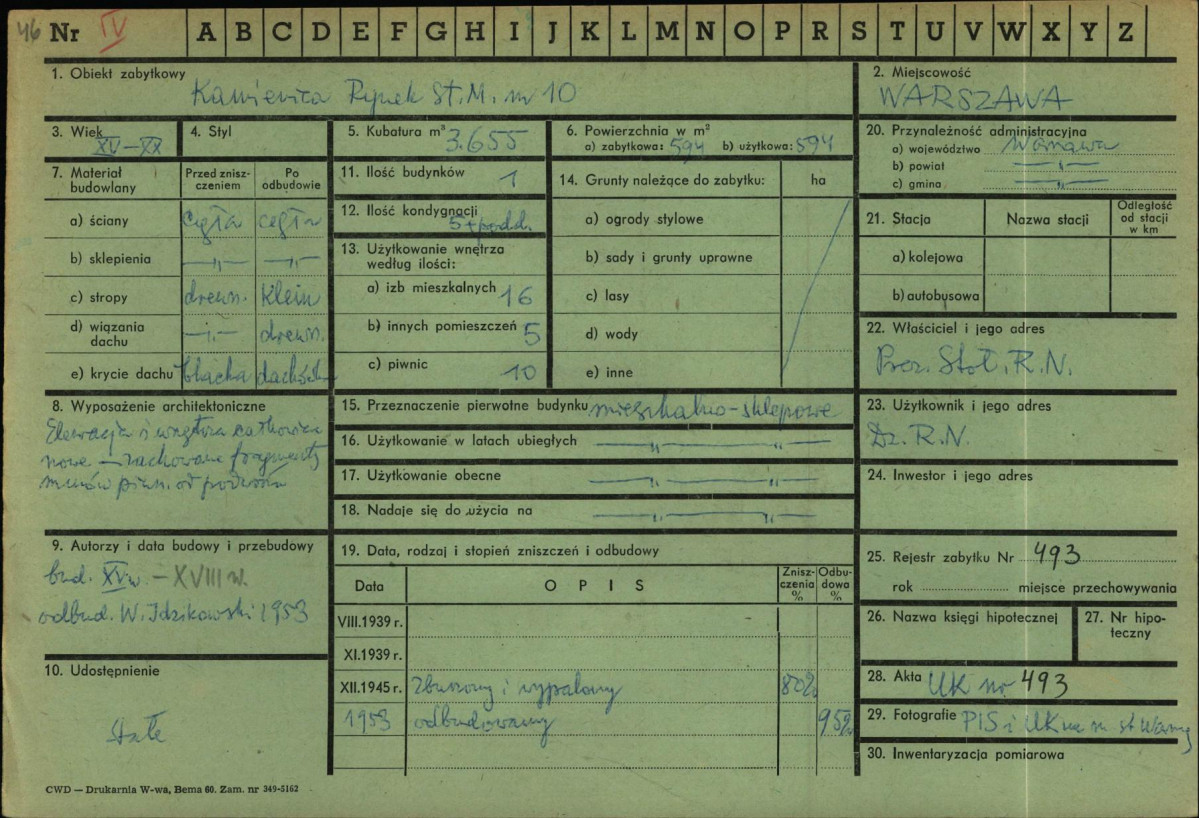 46 Nr IV A B C D E F G H I J K L M N O P R S T U V W X Y Z
1. Obiekt zabytkowy
Kamienica Rynek St. M. nr 10
2. Miejscowość
WARSZAWA
3. Wiek
XV–XX
4. Styl
5. Kubatura m³ 3.655
6. Powierzchnia w m²
a) zabytkowa: 594 b) użytkowa: 594
20. Przynależność administracyjna
a) województwo Warszawa
b) powiat —„—
c) gmina —„—
7. Materiał budowlany
Przed zniszczeniem
Po odbudowie
a) ściany cegła cegła
b) sklepienia —„— —„—
c) stropy drewn. Klein
d) wiązania dachu —„— drewn.
e) krycie dachu blacha dachówk
11. Ilość budynków 1
12. Ilość kondygnacji 5 + podd.
13. Użytkowanie wnętrza
według ilości:
a) izb mieszkalnych 16
b) innych pomieszczeń 5
c) piwnic 10
14. Grunty należące do zabytku: ha
a) ogrody stylowe
b) sady i grunty uprawne
c) lasy
d) wody
e) inne
21. Stacja Nazwa stacji Odległość od stacji w km
a) kolejowa
b) autobusowa
22. Właściciel i jego adres
Prez. Stoł. R.N.
8. Wyposażenie architektoniczne
Elewacja i wnętrza całkowicie
nowe — zachowane fragmenty
murów piwn. od podwórza
15. Przeznaczenie pierwotne budynku mieszkalno-sklepowe
16. Użytkowanie w latach ubiegłych —„— „—
17. Użytkowanie obecne —„— „—
18. Nadaje się do użycia na —„— „—
23. Użytkownik i jego adres
Dz. R.N.
24. Inwestor i jego adres
9. Autorzy i data budowy i przebudowy
bud. XV w. – XVIII w.
odbud. W. Idzikowski 1953
19. Data, rodzaj i stopień zniszczeń i odbudowy
Data OPIS Zniszczenia % Odbudowa %
VIII.1939 r.
XI.1939 r.
XII.1945 r. zburzony i wypalony 80%
1953 odbudowany 95%
25. Rejestr zabytku Nr 493
rok miejsce przechowywania
26. Nazwa księgi hipotecznej
27. Nr hipoteczny
10. Udostępnienie
Stałe
28. Akta UK nr 493
29. Fotografie PIS i UK na m. st Warsz
30. Inwentaryzacja pomiarowa
CWD — Drukarnia W-wa, Bema 60. Zam. nr 349-5162